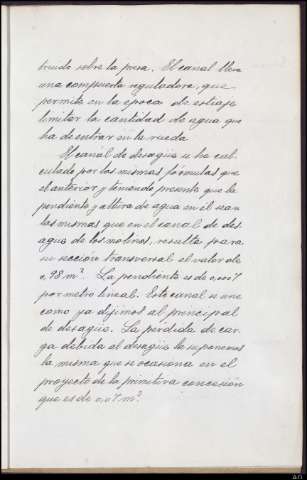 truido sobre la presa. El canal lleva
una compuerta reguladora, que
permite en la época de estiaje
limitar la cantidad de agua que
ha de entrar en la rueda
El canal de desagüe se ha cal-
culado por las mismas fórmulas que
el anterior, y teniendo presente que la
pendiente y altura de agua en él sean
las mismas que en el canal de des-
agüe de los molinos, resulta para
su sección transversal el valor de
0,98 m². La pendiente es de 0,001
por metro lineal. Este canal se une
como ya dijimos al principal
de desagüe. La pérdida de car-
ga debida al desagüe la suponemos
la misma que se ocasiona en el
proyecto de la primitiva concesión
que es de 0,07 m².